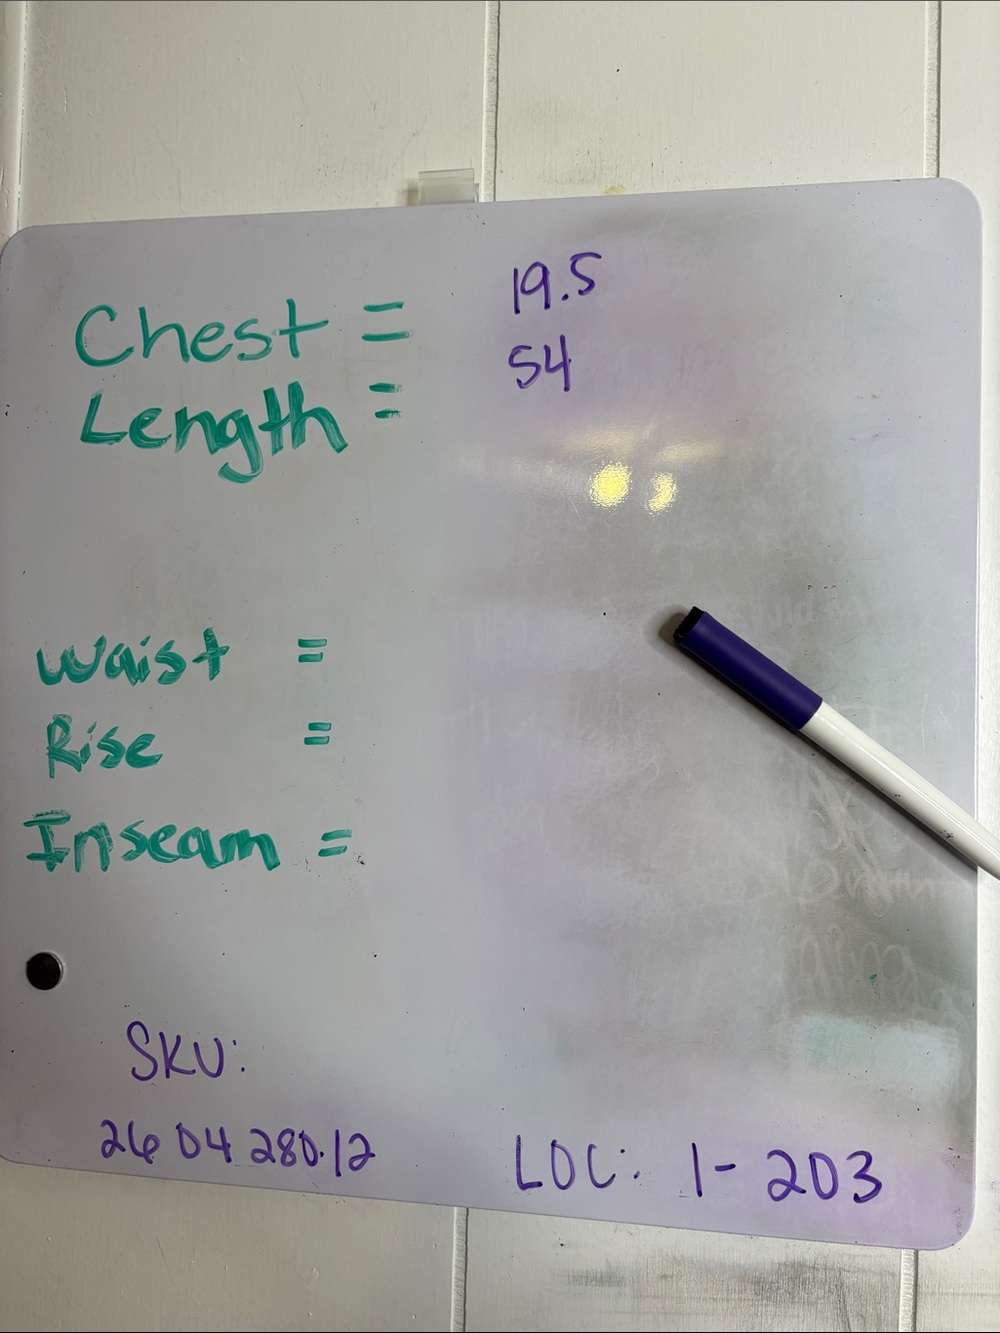 Chest = 19.5
Length = 54
Waist =
Rise =
Inseam =
SKU:
26 04 280.12
LOC: 1-203